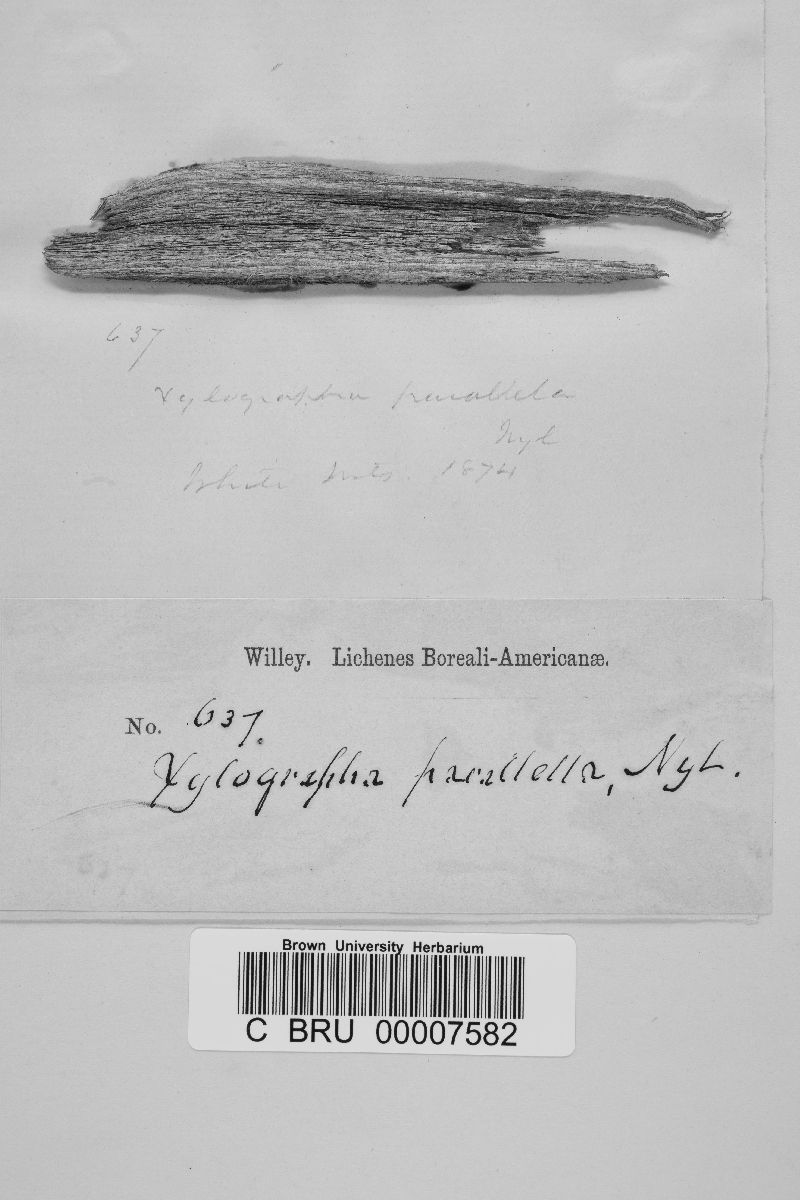 637
Xylographa parallela
Nyl
White Mts. 1874
Willey. Lichenes Boreali-Americanæ.
No. 637.
Xylographa parallella, Nyl.
Brown University Herbarium
C BRU 00007582